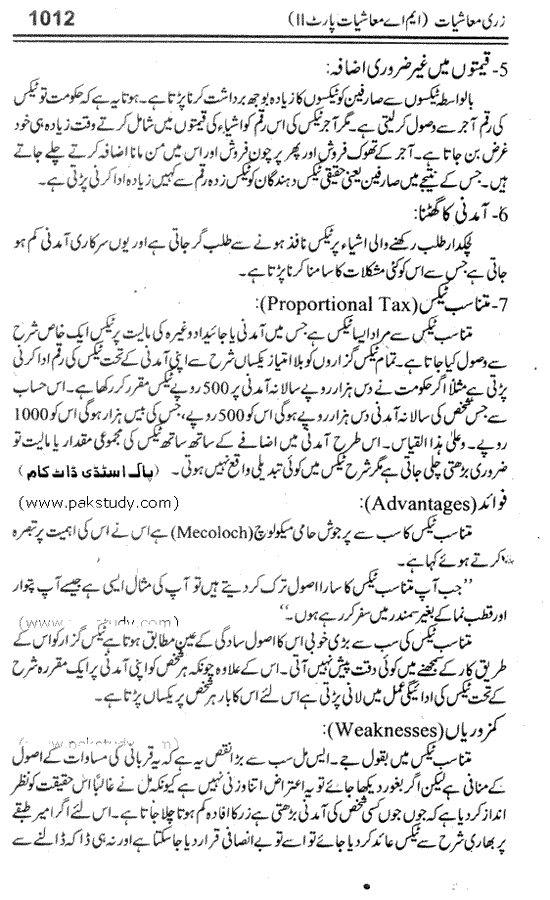 زری معاشیات (ایم اے معاشیات پارٹ II) 1012
5- قیمتوں میں غیر ضروری اضافہ:
بالواسطہ ٹیکسوں سے صارفین کو ٹیکسوں کا زیادہ بوجھ برداشت کرنا پڑتا ہے۔ ہوتا یہ ہے کہ حکومت تو ٹیکس
کی رقم آجر سے وصول کر لیتی ہے۔ مگر آجر ٹیکس کی اس رقم کو اشیاء کی قیمتوں میں شامل کرتے وقت زیادہ ہی خود
غرض بن جاتا ہے۔ آجر کے تھوک فروش اور پھر پرچون فروش اور اس میں من مانا اضافہ کرتے چلے جاتے
ہیں۔ جس کے نتیجے میں صارفین یعنی حقیقی ٹیکس دہندگان کو ٹیکس زدہ رقم سے کہیں زیادہ ادا کرنی پڑتی ہے۔
6- آمدنی کا گھٹنا:
لچکدار طلب رکھنے والی اشیاء پر ٹیکس نافذ ہونے سے طلب گر جاتی ہے اور یوں سرکاری آمدنی کم ہو
جاتی ہے جس سے اس کو کئی مشکلات کا سامنا کرنا پڑتا ہے۔
7- متناسب ٹیکس (Proportional Tax):
متناسب ٹیکس سے مراد ایسا ٹیکس ہے جس میں آمدنی یا جائیداد وغیرہ کی مالیت پر ٹیکس ایک خاص شرح
سے وصول کیا جاتا ہے۔ تمام ٹیکس گزاروں کو بلا امتیاز یکساں شرح سے اپنی آمدنی کے تحت ٹیکس کی رقم ادا کرنی
پڑتی ہے مثلاً اگر حکومت نے دس ہزار روپے سالانہ آمدنی پر 500 روپے ٹیکس مقرر کر رکھا ہے۔ اس حساب
سے جس شخص کی سالانہ آمدنی دس ہزار روپے ہوگی اس کو 500 روپے، جس کی بیس ہزار ہوگی اس کو 1000
روپے۔ وعلیٰ ہذا القیاس۔ اس طرح آمدنی میں اضافے کے ساتھ ساتھ ٹیکس کی مجموعی مقدار یا مالیت تو
ضروری بڑھتی چلی جاتی ہے مگر شرح ٹیکس میں کوئی تبدیلی واقع نہیں ہوتی۔ (پاک اسٹڈی ڈاٹ کام)
فوائد (Advantages): (www.pakstudy.com)
متناسب ٹیکس کا سب سے پرجوش حامی میکولوچ (Mecoloch) ہے اس نے اس کی اہمیت پر تبصرہ
کرتے ہوئے کہا ہے۔
"جب آپ متناسب ٹیکس کا سارا اصول ترک کر دیتے ہیں تو آپ کی مثال ایسی ہے جیسے آپ پتوار
اور قطب نما کے بغیر سمندر میں سفر کر رہے ہوں۔" (www.pakstudy.com)
متناسب ٹیکس کی سب سے بڑی خوبی اس کا اصول سادگی کے عین مطابق ہوتا ہے ٹیکس گزار کو اس کے
طریق کار کے سمجھنے میں کوئی دقت پیش نہیں آتی۔ اس کے علاوہ چونکہ ہر شخص کو اپنی آمدنی پر ایک مقررہ شرح
کے تحت ٹیکس کی ادائیگی عمل میں لانی پڑتی ہے اس لئے اس کا بار ہر شخص پر یکساں پڑتا ہے۔
کمزوریاں (Weaknesses): (www.pakstudy.com)
متناسب ٹیکس میں بقول جے۔ ایس مل سب سے بڑا نقص یہ ہے کہ یہ قربانی کی مساوات کے اصول
کے منافی ہے لیکن اگر بغور دیکھا جائے تو یہ اعتراض اتنا وزنی نہیں ہے کیونکہ مل نے غالباً اس حقیقت کو نظر
انداز کر دیا ہے کہ جوں جوں کسی شخص کی آمدنی بڑھتی ہے زر کا افادہ کم ہوتا چلا جاتا ہے۔ اس لئے اگر امیر طبقے
پر بھاری شرح سے ٹیکس عائد کر دیا جائے تو اسے تو بے انصافی قرار دیا جا سکتا ہے اور نہ ہی ڈاکہ ڈالنے سے